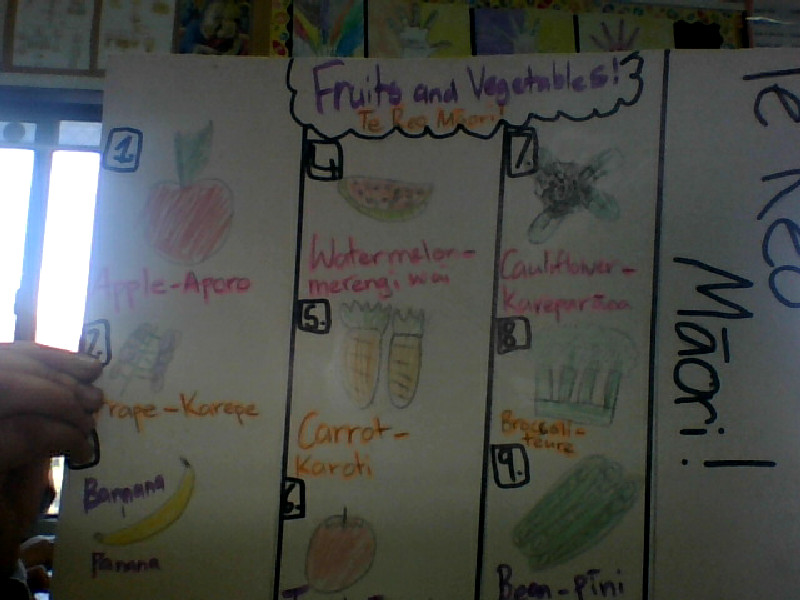 Fruits and Vegetables!
Te Reo Māori!
1.
Apple-Aporo
2.
Grape-Karepe
Banana
Panana
4.
Watermelon-
merengi wai
5.
Carrot-
Karoti
6.
7.
Cauliflower-
Kareparāoa
8.
Broccoli-
9.
Bean-pīni
Te Reo
Māori!